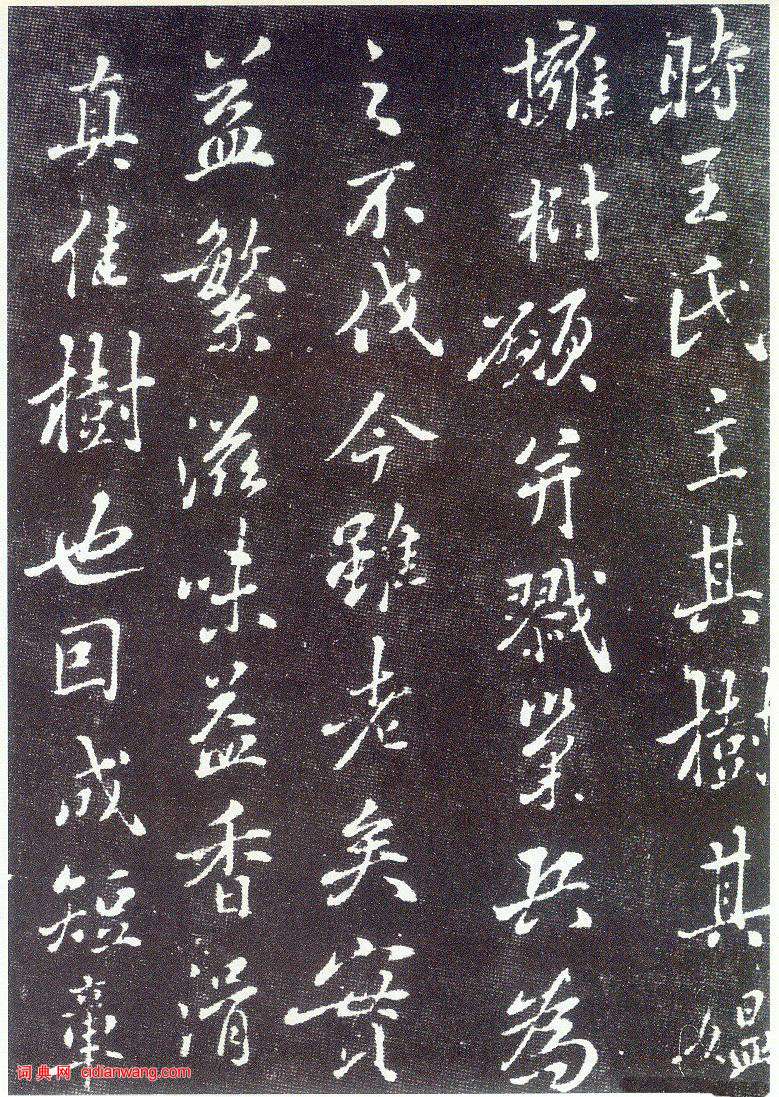 時王氏主其樹其媼
擁樹願并戮巢兵為
之不伐今雖老矣實
益繁滋味益香滑
真佳樹也因成短章
词典网 cidianwang.com